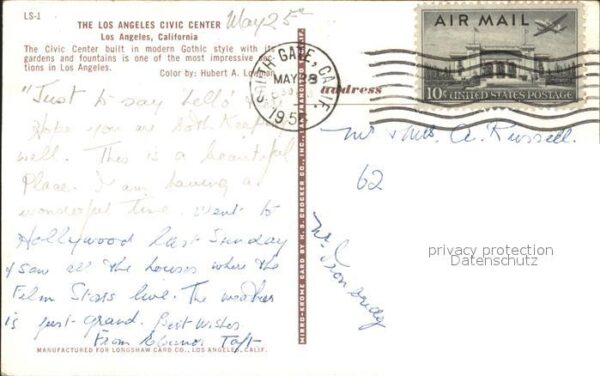 LS-1
THE LOS ANGELES CIVIC CENTER
Los Angeles, California
The Civic Center built in modern Gothic style with its
gardens and fountains is one of the most impressive
tions in Los Angeles.
Color by: Hubert A. Lowman
May 25th
"Just to say 'hello'
Hope you are both keeping
well. This is a beautiful
Place. I am having a
wonderful time. Went to
Hollywood last Sunday
& saw all the houses where the
Film Stars live. The weather
is just grand. Best Wishes
From Elinor Taft
MANUFACTURED FOR LONGSHAW CARD CO., LOS ANGELES, CALIF.
MIRRO-KROME CARD BY H. S. CROCKER CO., INC., SAN FRANCISCO
SOUTH GATE, CALIF.
MAY 28
1954
address
AIR MAIL
10¢ UNITED STATES POSTAGE
Mr & Mrs A. Russell
62
Nr
privacy protection
Datenschutz